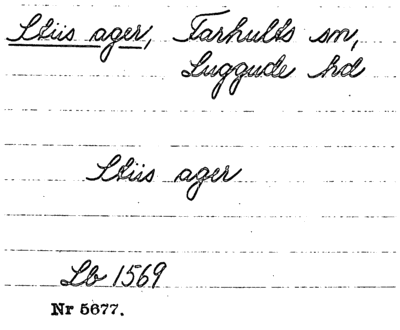 Stiis ager, Farhults sn,
Luggude hd
Stiis ager
Lb 1569
Nr 5677.